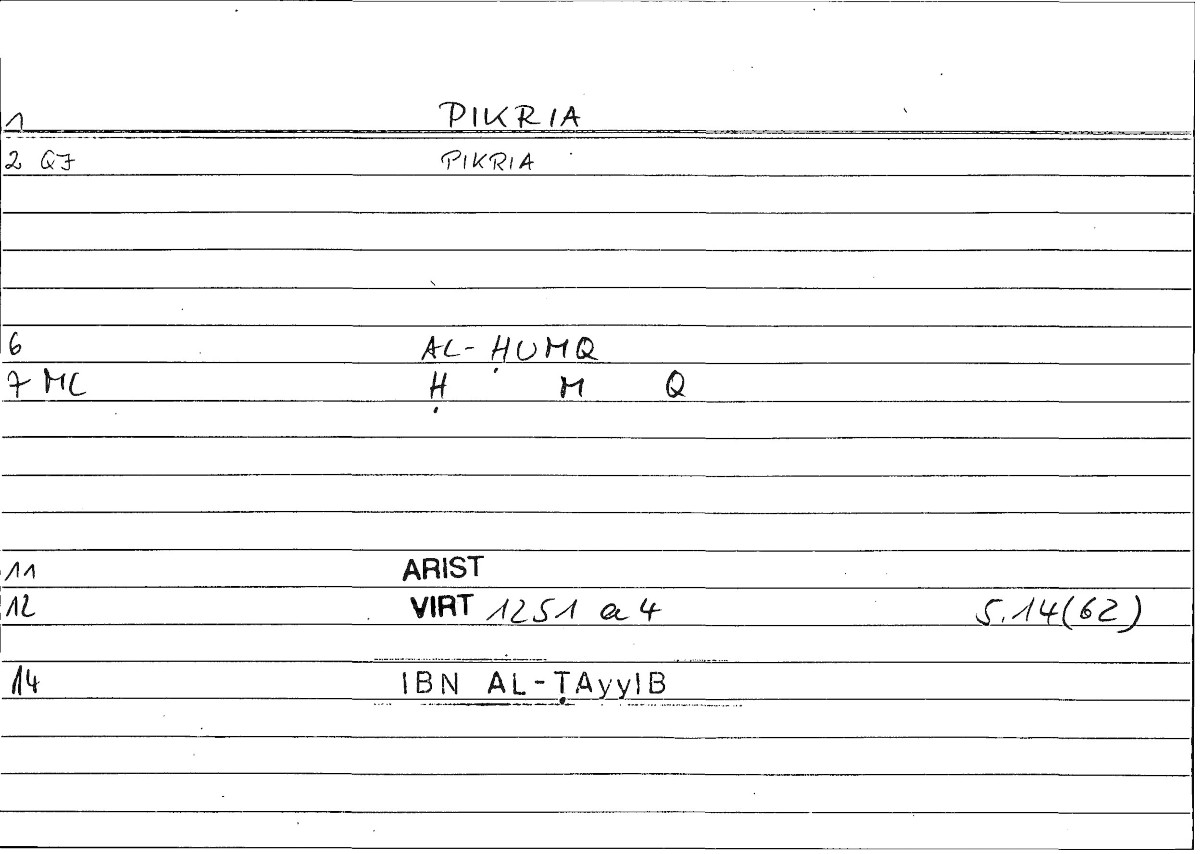 1 PIKRIA
2 QJ PIKRIA
6 AL-ḤUMQ
7 MC Ḥ M Q
11 ARIST
12 VIRT 1251 a 4 5.14(62)
14 IBN AL-ṬAyyIB